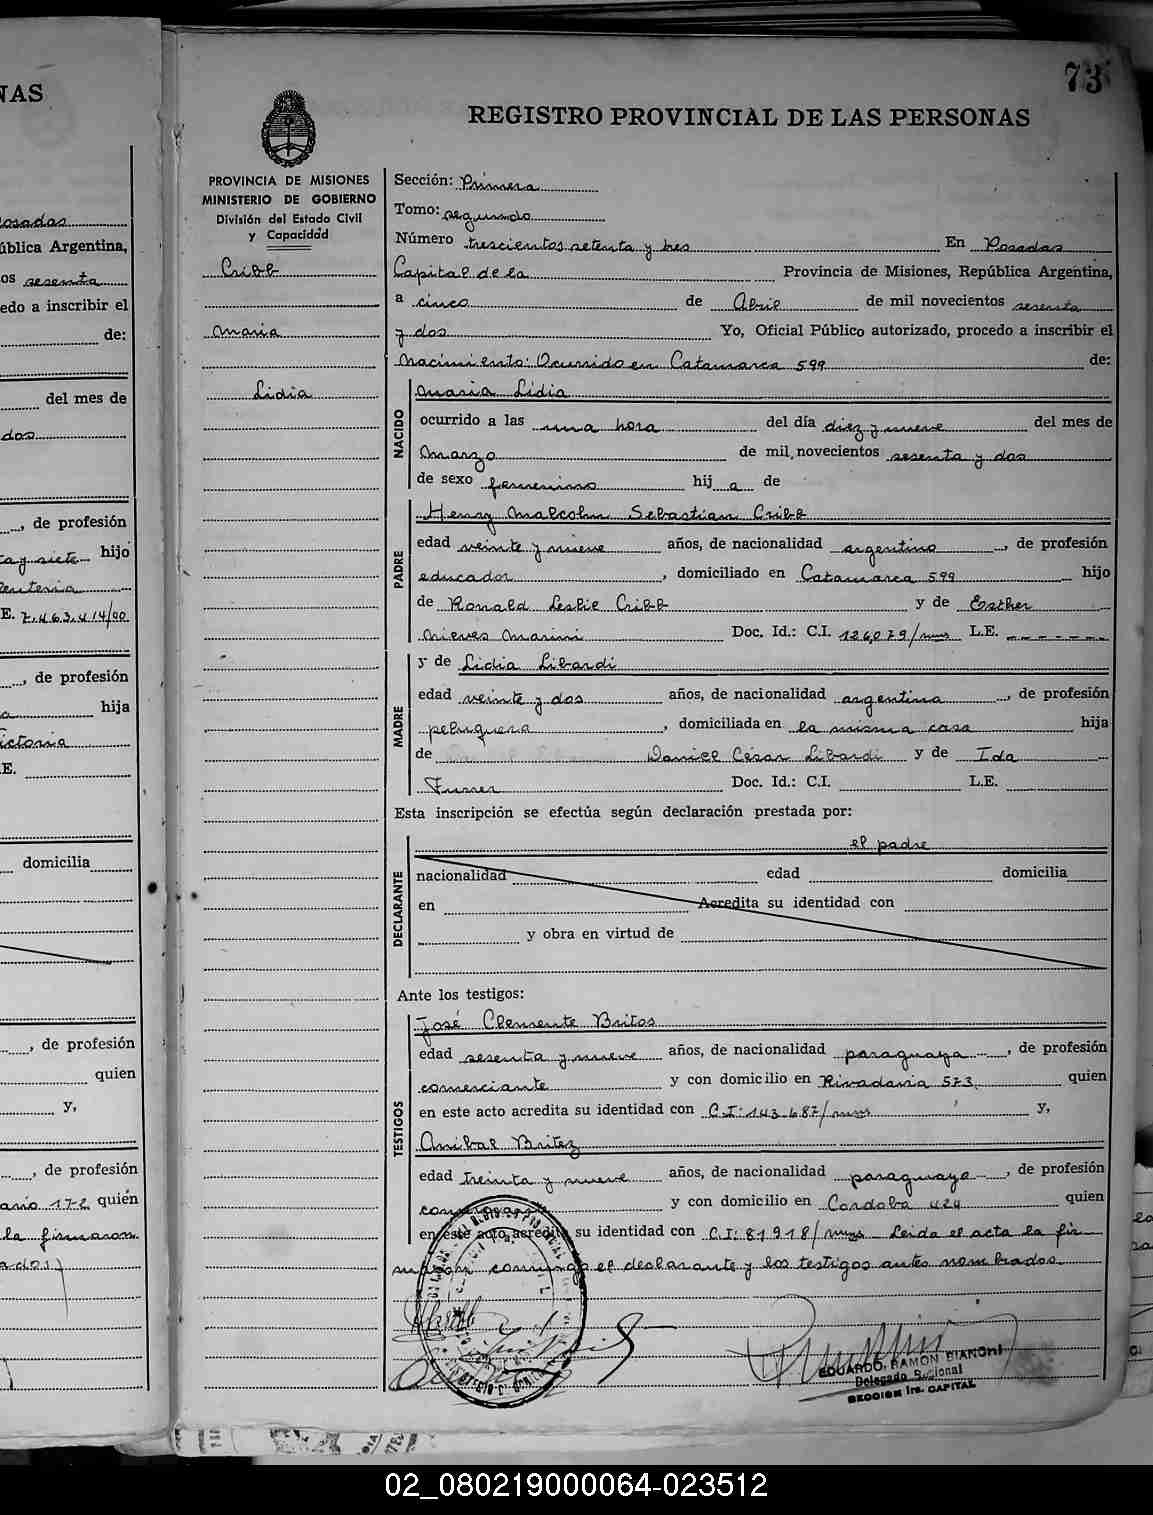 NAS
osadas
ública Argentina,
os sesenta
edo a inscribir el
de:
del mes de
dos
, de profesión
ta y siete hijo
E. 7.463.414/00
, de profesión
hija
ictoria
E.
domicilia
, de profesión
quien
y,
, de profesión
ario 172 quién
la firmaron
ados)
73
REGISTRO PROVINCIAL DE LAS PERSONAS
PROVINCIA DE MISIONES
MINISTERIO DE GOBIERNO
División del Estado Civil
y Capacidad
Cribb
Maria
Lidia
Sección: Primera
Tomo: segundo
Número trescientos setenta y tres En Posadas
Capital de la Provincia de Misiones, República Argentina,
a cinco de Abril de mil novecientos sesenta
y dos Yo, Oficial Público autorizado, procedo a inscribir el
Nacimiento: Ocurrido en Catamarca 599 de:
NACIDO
Maria Lidia
ocurrido a las una hora del día diez y nueve del mes de
Marzo de mil novecientos sesenta y dos
de sexo femenino hij a de
PADRE
Henry Malcolm Sebastian Cribb
edad veinte y nueve años, de nacionalidad argentino, de profesión
educador, domiciliado en Catamarca 599 hijo
de Ronald Leslie Cribb y de Esther
Nieves Marini Doc. Id.: C.I. 126.079/mnes L.E. - - - - - -
MADRE
y de Lidia Libardi
edad veinte y dos años, de nacionalidad argentina, de profesión
peluquera, domiciliada en la misma casa hija
de Daniel César Libardi y de Ida
Furrer Doc. Id.: C.I. L.E.
Esta inscripción se efectúa según declaración prestada por:
el padre
DECLARANTE
nacionalidad edad domicilia
en Acredita su identidad con
y obra en virtud de
Ante los testigos:
TESTIGOS
José Clemente Britos
edad sesenta y nueve años, de nacionalidad paraguaya, de profesión
comerciante y con domicilio en Rivadavia 573 quien
en este acto acredita su identidad con C.I: 143.687/mnes y,
Anibal Britez
edad treinta y nueve años, de nacionalidad paraguaya, de profesión
y con domicilio en Cordoba 424 quien
en este acto acredita su identidad con C.I: 81918/mnes Leida el acta la fir-
maron conmigo el declarante y los testigos antes nombrados.
EDUARDO RAMON BIANCHI
Delegado Seccional
SECCION 1ra. CAPITAL
02_080219000064-023512